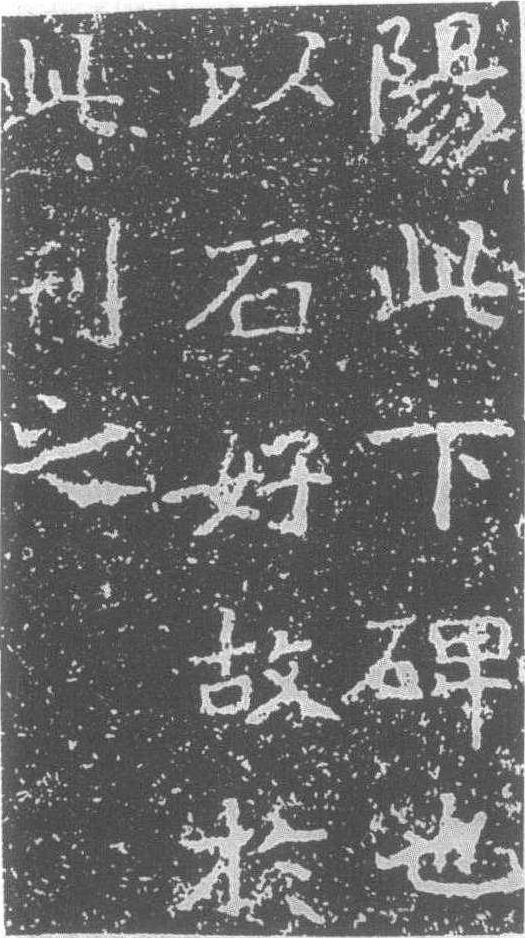 陽此下碑也
以石好故於
此刊之